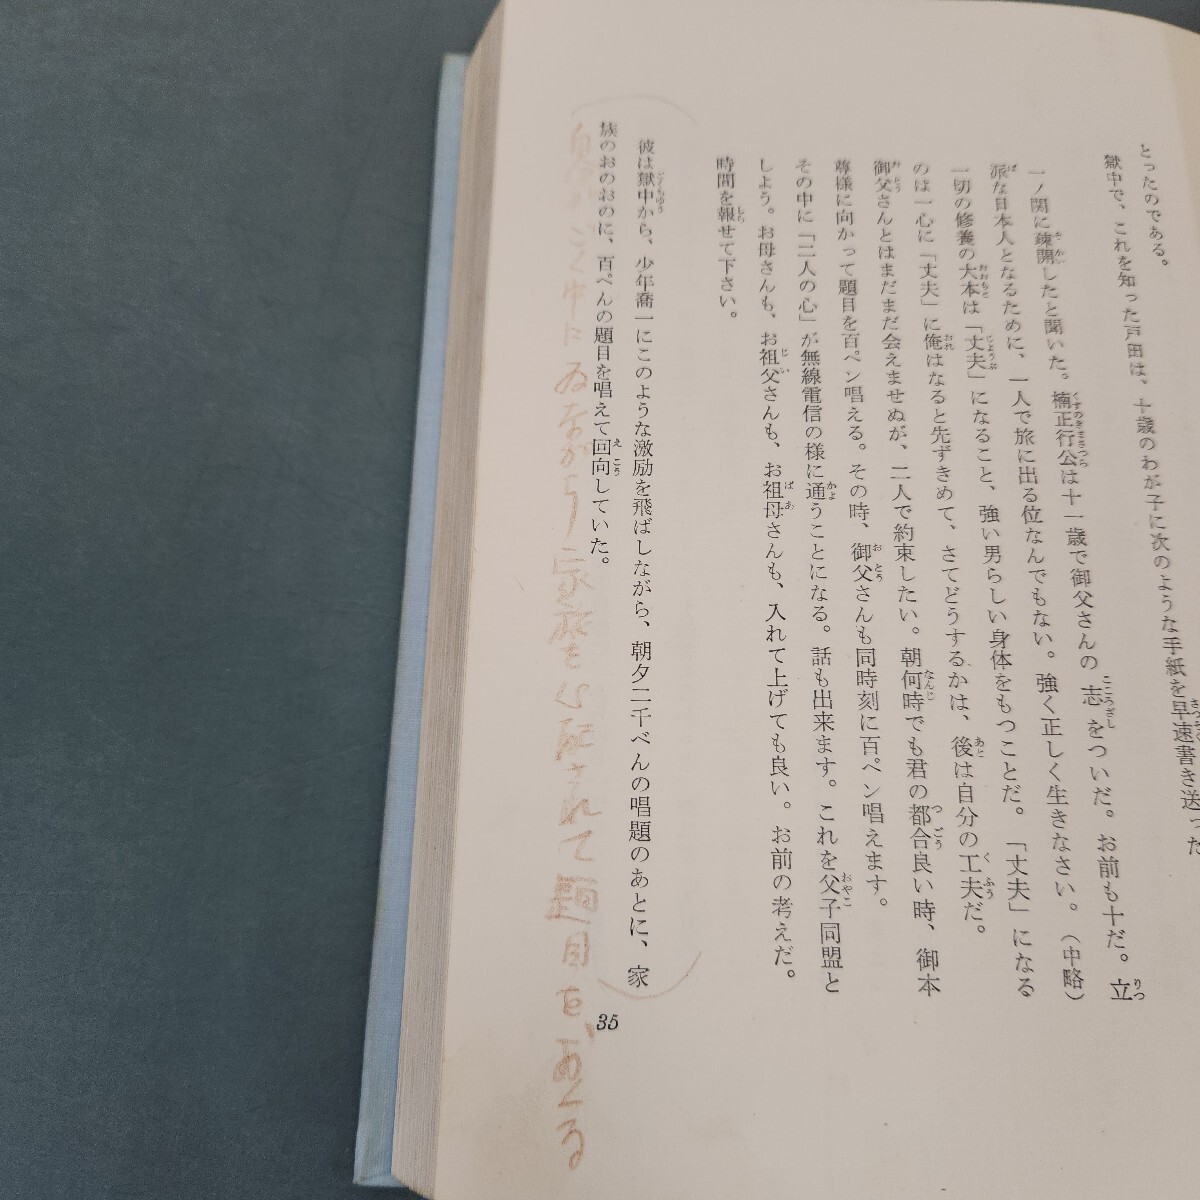 とったのである。
獄中で、これを知った戸田は、十歳のわが子に次のような手紙を早速書き送った
一ノ関に疎開したと聞いた。楠正行公は十一歳で御父さんの志をついだ。お前も十だ。立
派な日本人となるために、一人で旅に出る位なんでもない。強く正しく生きなさい。(中略)
一切の修養の大本は「丈夫」になること、強い男らしい身体をもつことだ。「丈夫」になる
のは一心に「丈夫」に俺はなると先ずきめて、さてどうするかは、後は自分の工夫だ。
御父さんとはまだまだ会えませぬが、二人で約束したい。朝何時でも君の都合良い時、御本
尊様に向かって題目を百ペン唱える。その時、御父さんも同時刻に百ペン唱えます。
その中に「二人の心」が無線電信の様に通うことになる。話も出来ます。これを父子同盟と
しよう。お母さんも、お祖父さんも、お祖母さんも、入れて上げても良い。お前の考えだ。
時間を報せて下さい。
彼は獄中から、少年喬一にこのような激励を飛ばしながら、朝夕二千べんの唱題のあとに、家
族のおのおのに、百ぺんの題目を唱えて回向していた。
ごく中にゐながら家庭を心配されて題目を、おくる
35